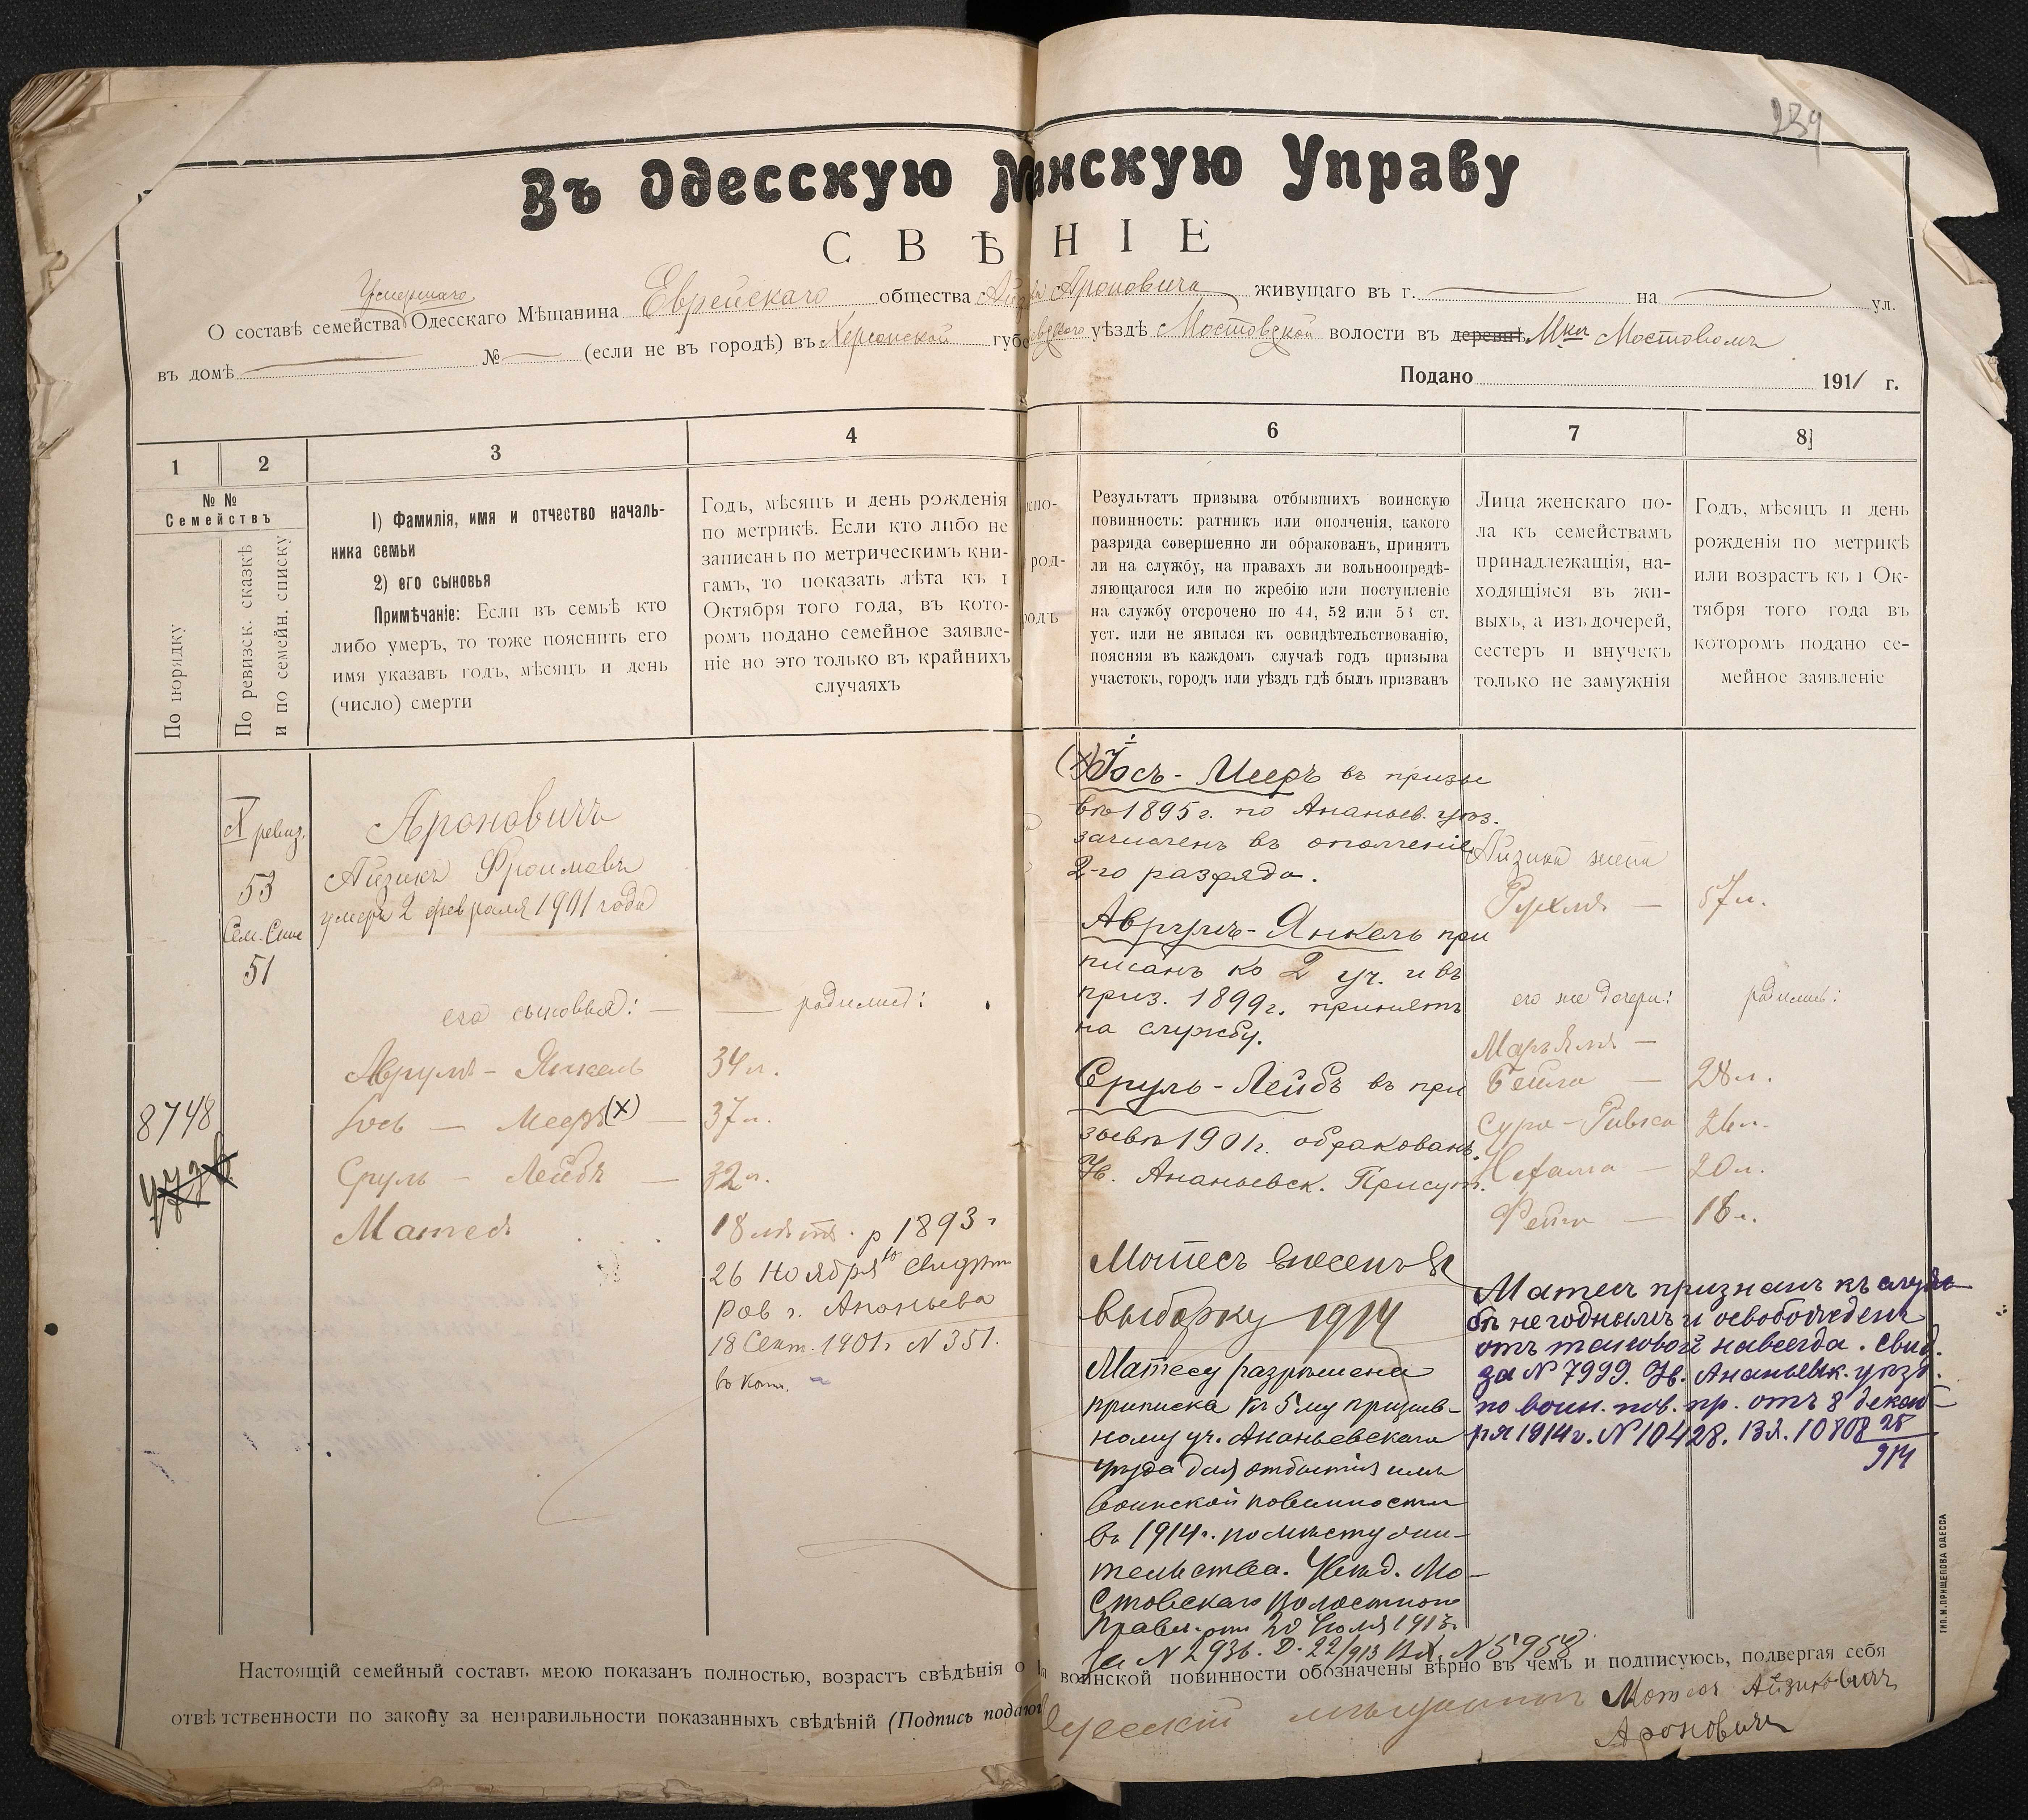 239
Въ Одесскую М нскую Управу
СВѢ НІЕ
Умершаго
О составѣ семейства Одесскаго Мѣщанина Еврейскаго общества Ароновича живущаго въ г. на ул.
въ домѣ № (если не въ городѣ) въ Херсонской губе уѣздѣ Мостовской волости въ деревнѣ Мостовомъ
Подано 1911 г.
1
2
3
4
6
7
8
№ №
Семействъ
По порядку
По ревизск. сказкѣ
и по семейн. списку
1) Фамилія, имя и отчество началь-
ника семьи
2) его сыновья
Примѣчаніе: Если въ семьѣ кто
либо умеръ, то тоже пояснить его
имя указавъ годъ, мѣсяцъ и день
(число) смерти
Годъ, мѣсяцъ и день рожденія
по метрикѣ. Если кто либо не
записанъ по метрическимъ кни-
гамъ, то показать лѣта къ 1
Октября того года, въ кото-
ромъ подано семейное заявле-
ніе но это только въ крайнихъ
случаяхъ
кно-
род-
родъ
Результатъ призыва отбывшихъ воинскую
повинность: ратникъ или ополченія, какого
разряда совершенно ли обракованъ, принятъ
ли на службу, на правахъ ли вольноопредѣ-
ляющагося или по жребію или поступленіе
на службу отсрочено по 44, 52 или 53 ст.
уст. или не явился къ освидѣтельствованію,
поясняя въ каждомъ случаѣ годъ призыва
участокъ, городъ или уѣздъ гдѣ былъ призванъ
Лица женскаго по-
ла къ семействамъ
принадлежащія, на-
ходящіяся въ жи-
выхъ, а изъ дочерей,
сестеръ и внучекъ
только не замужнія
Годъ, мѣсяцъ и день
рожденія по метрикѣ
или возрастъ къ 1 Ок-
тября того года въ
которомъ подано се-
мейное заявленіе
X ревиз.
53
Сем. Спис
51
8748
Ароновичъ
Айзикъ Фроимовъ
умеръ 2 февраля 1901 года
его сыновья: — родились:
Аврумъ - Янкель 34 л.
Іось — Мееръ (х) — 37 л.
Сруль - Лейбъ — 32 л.
Матесъ 18 лѣтъ. р 1893 г
26 Ноября
рав г. Ананьева
18 Сент. 1901 г. N 351.
въ коп.
(х) Іось - Мееръ въ призы
вѣ 1895 г. по Ананьев. уѣз.
зачисленъ въ ополченіе
2-го разряда.
Аврумъ - Янкель при
писанъ ко 2 уч. и въ
приз. 1899 г. принятъ
на службу.
Сруль - Лейбъ въ при
зывѣ 1901 г. обракованъ.
Ув. Ананьевск. Присут.
Матесъ внесенъ въ
выборку 1914
Матесу разрѣшена
приписка къ 5 му призыв-
ному уч. Ананьевскаго
уѣзда для отбытія имъ
воинской повинности
въ 1914 г. по мѣсту жи-
тельства. Увѣд. Мо-
стовскаго Волостного
Правл. отъ 20 Іюля 1913 г.
за N 2936. Д. 22/913 Вх. N 5958
Айзика жена
Рухля — 57 л.
его же дочери: родились:
Марьямъ —
Бейла — 28 л.
Сура - Ривка 26 л.
Нехама — 20 л.
Фейга — 18 л.
Матесъ признанъ къ служ
бѣ негоднымъ и освобожденъ
отъ таковой навсегда. Свид.
за N 7999. Ув. Ананьевск. уѣзд.
по воин. пов. пр. отъ 8 декаб-
ря 1914 г. N 10428. Вх. 10808 28
914
Настоящій семейный составъ мною показанъ полностью, возрастъ свѣдѣнія о воинской повинности обозначены вѣрно въ чемъ и подписуюсь, подвергая себя
отвѣтственности по закону за неправильности показанныхъ свѣдѣній (Подпись подающ
Одесскій мѣщанинъ Матесъ Айзиковичъ
Ароновичъ
ТИП. М. ПРИЩЕПОВА ОДЕССА